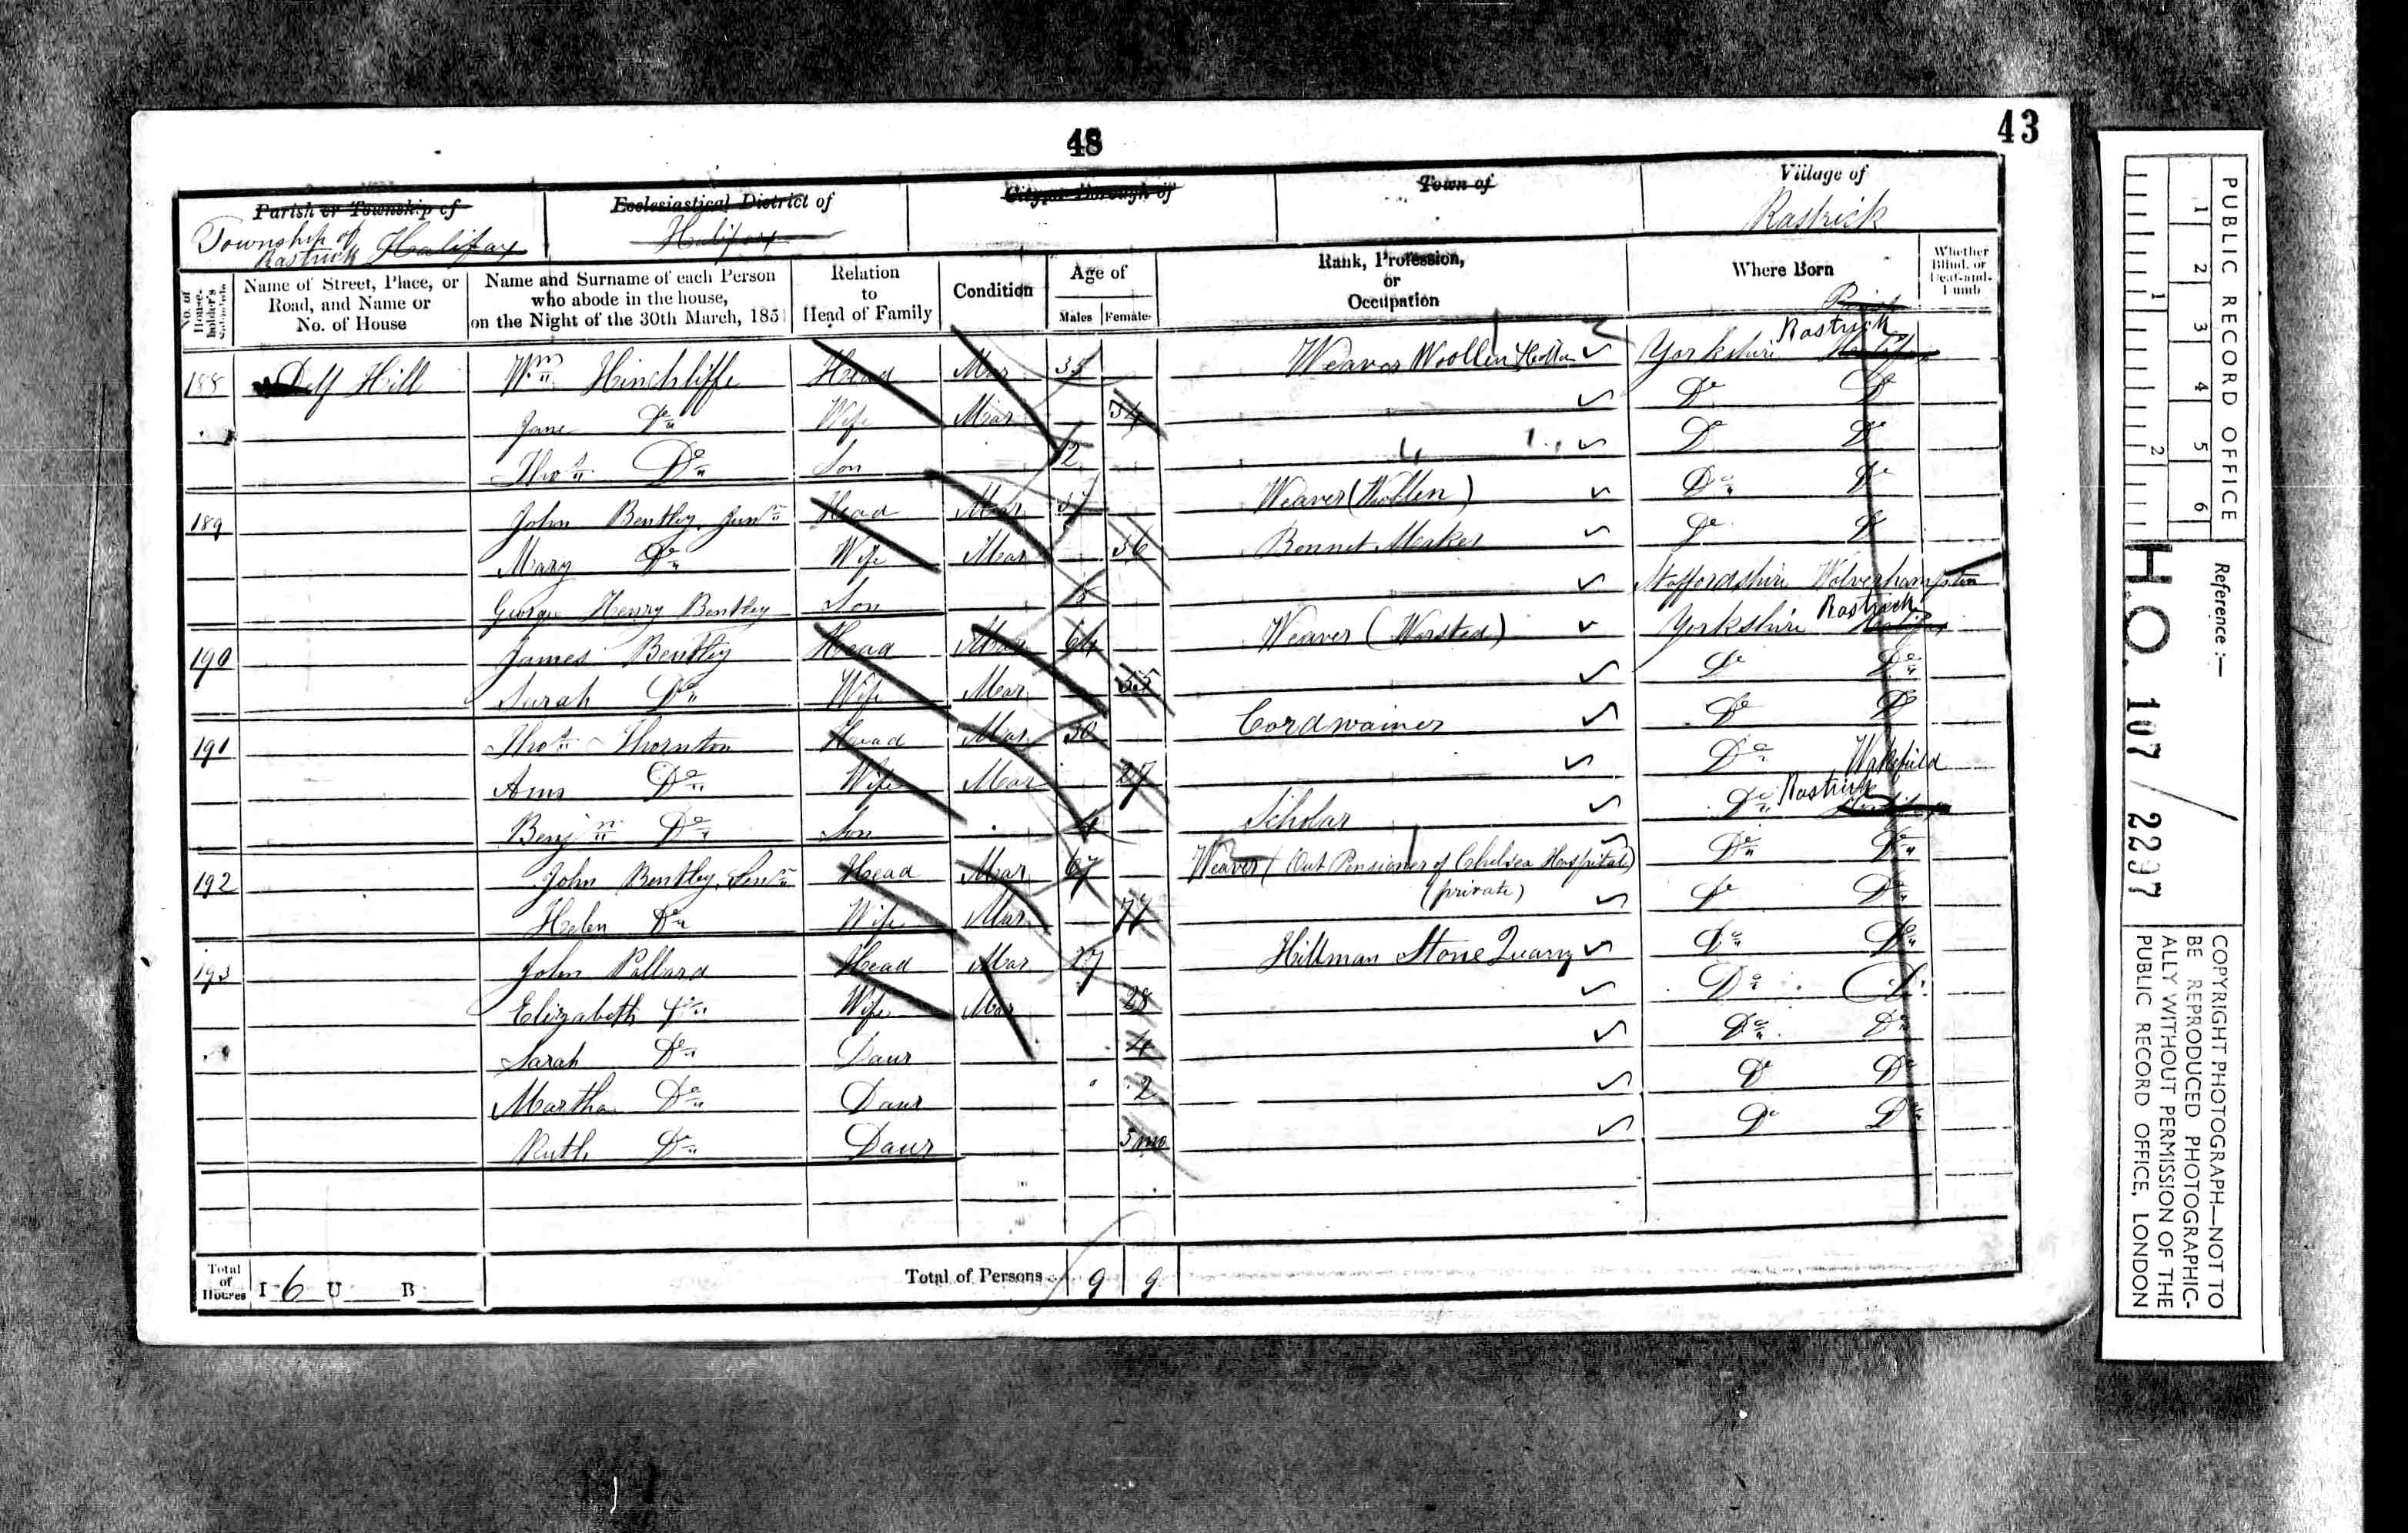 48
43
Parish or Township of
Ecclesiastical District of
City or Borough of
Town of
Village of
Township of Rastrick Halifax
Halifax
Rastrick
No. of House-holder's Schedule
Name of Street, Place, or Road, and Name or No. of House
Name and Surname of each Person who abode in the house, on the Night of the 30th March, 1851
Relation to Head of Family
Condition
Age of
Males
Females
Rank, Profession, or Occupation
Where Born
Whether Blind, or Deaf-and-Dumb
188 Delf Hill Wm Hinchliffe Head Mar 35 Weaver Woollen Yorkshire Rastrick Halifax
Jane Do Wife Mar 34 Do Do
Thos Do Son 12 Do Do
189 John Bentley Junr Head Mar 37 Weaver (Woollen) Do Do
Mary Do Wife Mar 36 Bonnet Maker Do Do
George Henry Bentley Son Staffordshire Wolverhampton
190 James Bentley Head Mar 64 Weaver (Worsted) Yorkshire Rastrick Halifax
Sarah Do Wife Mar 55 Do Do
191 Thos Thornton Head Mar 30 Cordwainer Do Do
Ann Do Wife Mar 27 Do Wakefield
Benjn Do Son 4 Scholar Do Rastrick Halifax
192 John Bentley Senr Head Mar 67 Weaver (Out Pensioner of Chelsea Hospital) Do Do
(private)
Helen Do Wife Mar 77 Do Do
193 John Pollard Head Mar 27 Hillman Stone Quarry Do Do
Elizabeth Do Wife Mar 28 Do Do
Sarah Do Daur 4 Do Do
Martha Do Daur 2 Do Do
Ruth Do Daur 5 mo Do Do
Total of Houses I 6 U B
Total of Persons 9 9
PUBLIC RECORD OFFICE
1 2 3 4 5 6
1 2
Reference:—
H.O. 107 / 2297
COPYRIGHT PHOTOGRAPH—NOT TO
BE REPRODUCED PHOTOGRAPHIC-
ALLY WITHOUT PERMISSION OF THE
PUBLIC RECORD OFFICE, LONDON